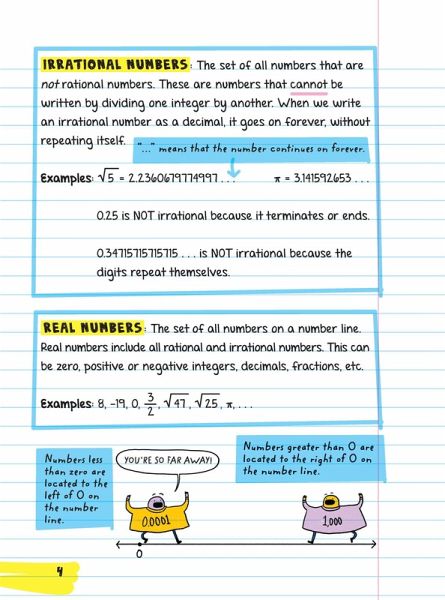 IRRATIONAL NUMBERS: The set of all numbers that are
not rational numbers. These are numbers that cannot be
written by dividing one integer by another. When we write
an irrational number as a decimal, it goes on forever, without
repeating itself.
"..." means that the number continues on forever.
Examples: √5 = 2.2360679774997 . . . π = 3.141592653 . . .
0.25 is NOT irrational because it terminates or ends.
0.34715715715715 . . . is NOT irrational because the
digits repeat themselves.
REAL NUMBERS: The set of all numbers on a number line.
Real numbers include all rational and irrational numbers. This can
be zero, positive or negative integers, decimals, fractions, etc.
Examples: 8, -19, 0, 3/2, √47, √25, π, . . .
Numbers less
than zero are
located to the
left of 0 on
the number
line.
YOU'RE SO FAR AWAY!
Numbers greater than 0 are
located to the right of 0 on
the number line.
0.0001
1,000
0
4